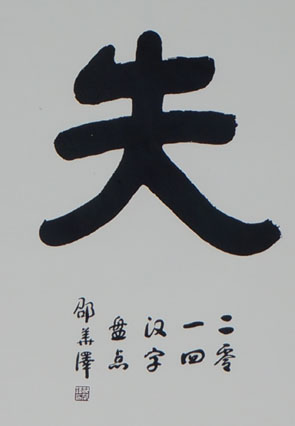 失
二零
一四
汉字
盘点
邵华泽